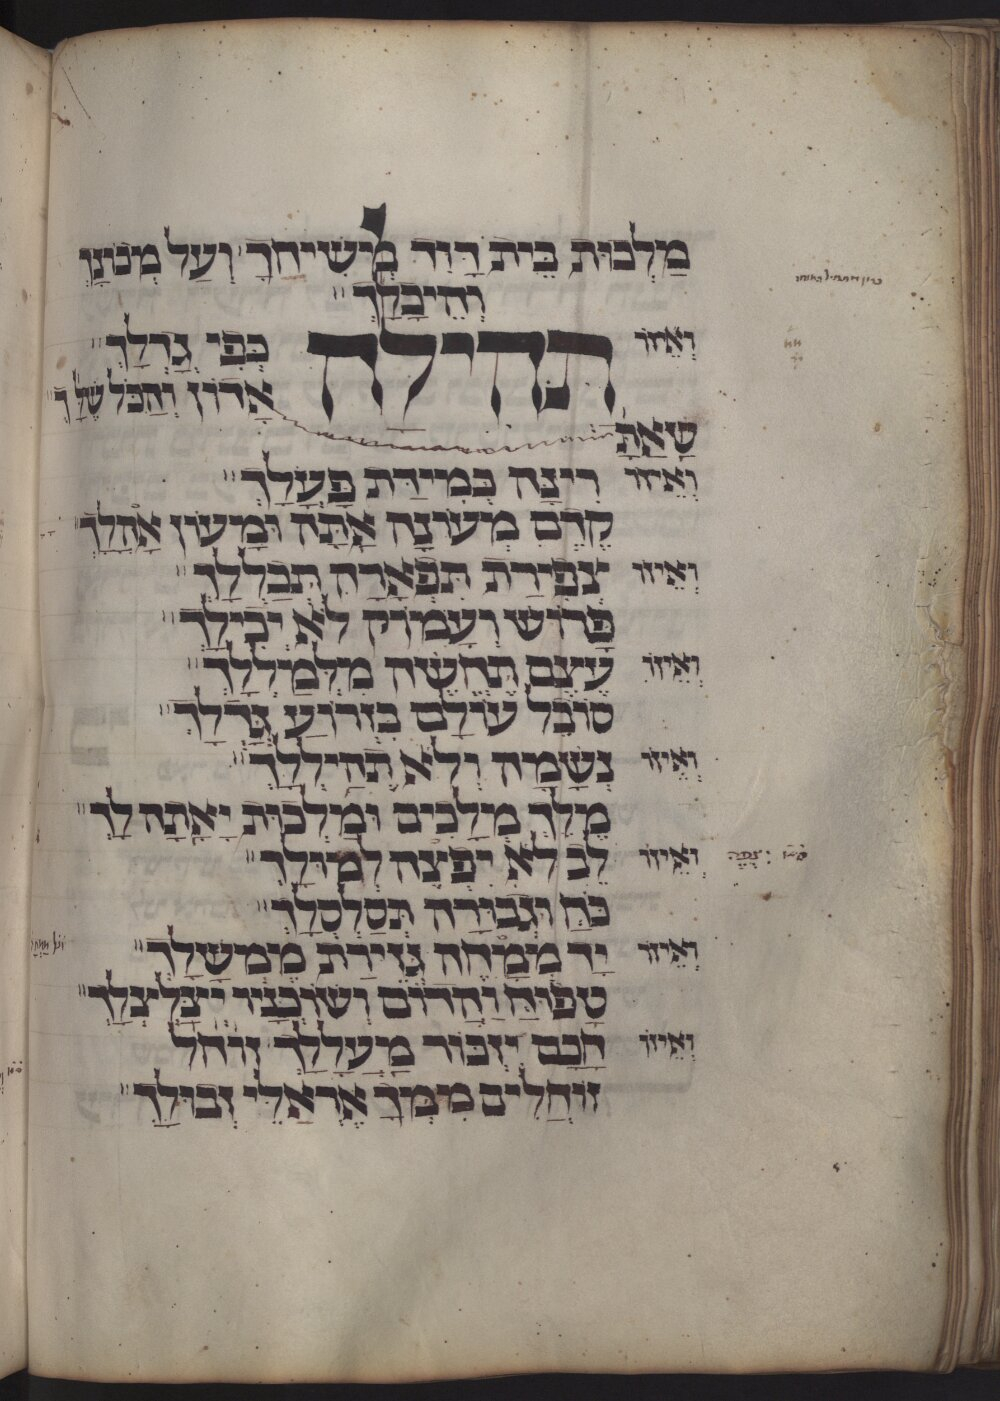 מַלְכוּת בֵּית דָּוִד מְשִׁיחֶךָ וְעַל מְכוֹנְךָ
וְהֵיכָלְךָ
וְאֵיזוֹ תְהִילָּה כְּפִי גָדְלָךְ
אָדוֹן וְהַכֹּל שֶׁלָּךְ
שָׁאַתָּה
וְאֵיזוֹ רִינָּה כְּמִידַּת פָּעֳלָךְ
קֶדֶם מְעוֹנָה אַתָּה וּמָעוֹן אָהֳלָךְ
וְאֵיזוֹ צְפִירַת תִּפְאָרָה תְּכַלְלָךְ
פָּרוֹשׁ וְעָמוֹק לֹא יְכִילָךְ
וְאֵיזוֹ עֶצֶם תֶּחֱשֶׁה מִלְּמַלְּלָךְ
סוֹבֵל עוֹלָם בִּזְרוֹעַ גָּדְלָךְ
וְאֵיזוֹ נְשָׁמָה וְלֹא תְהַילְלָךְ
מֶלֶךְ מְלָכִים וּמַלְכוּת יָאֲתָה לָךְ
וְאֵיזוֹ לֵב לֹא יִפְצֶה לְמוּלָךְ
כֹּחַ וּגְבוּרָה תְּסַלְסְלָךְ
וְאֵיזוֹ יָד מְמַחָה גְּזֵירַת מֶמְשָׁלָךְ
טִפּוּחַ וַהֲדוֹם וְשׁוֹכְנָיו יְצַלְצְלָךְ
וְאֵיזוֹ חָכָם יִזְכּוֹר מַעֲלָלָךְ זוֹחֵל
זוֹחֲלִים מִמְּךָ אֶרְאֶלֵּי זְבוּלָךְ